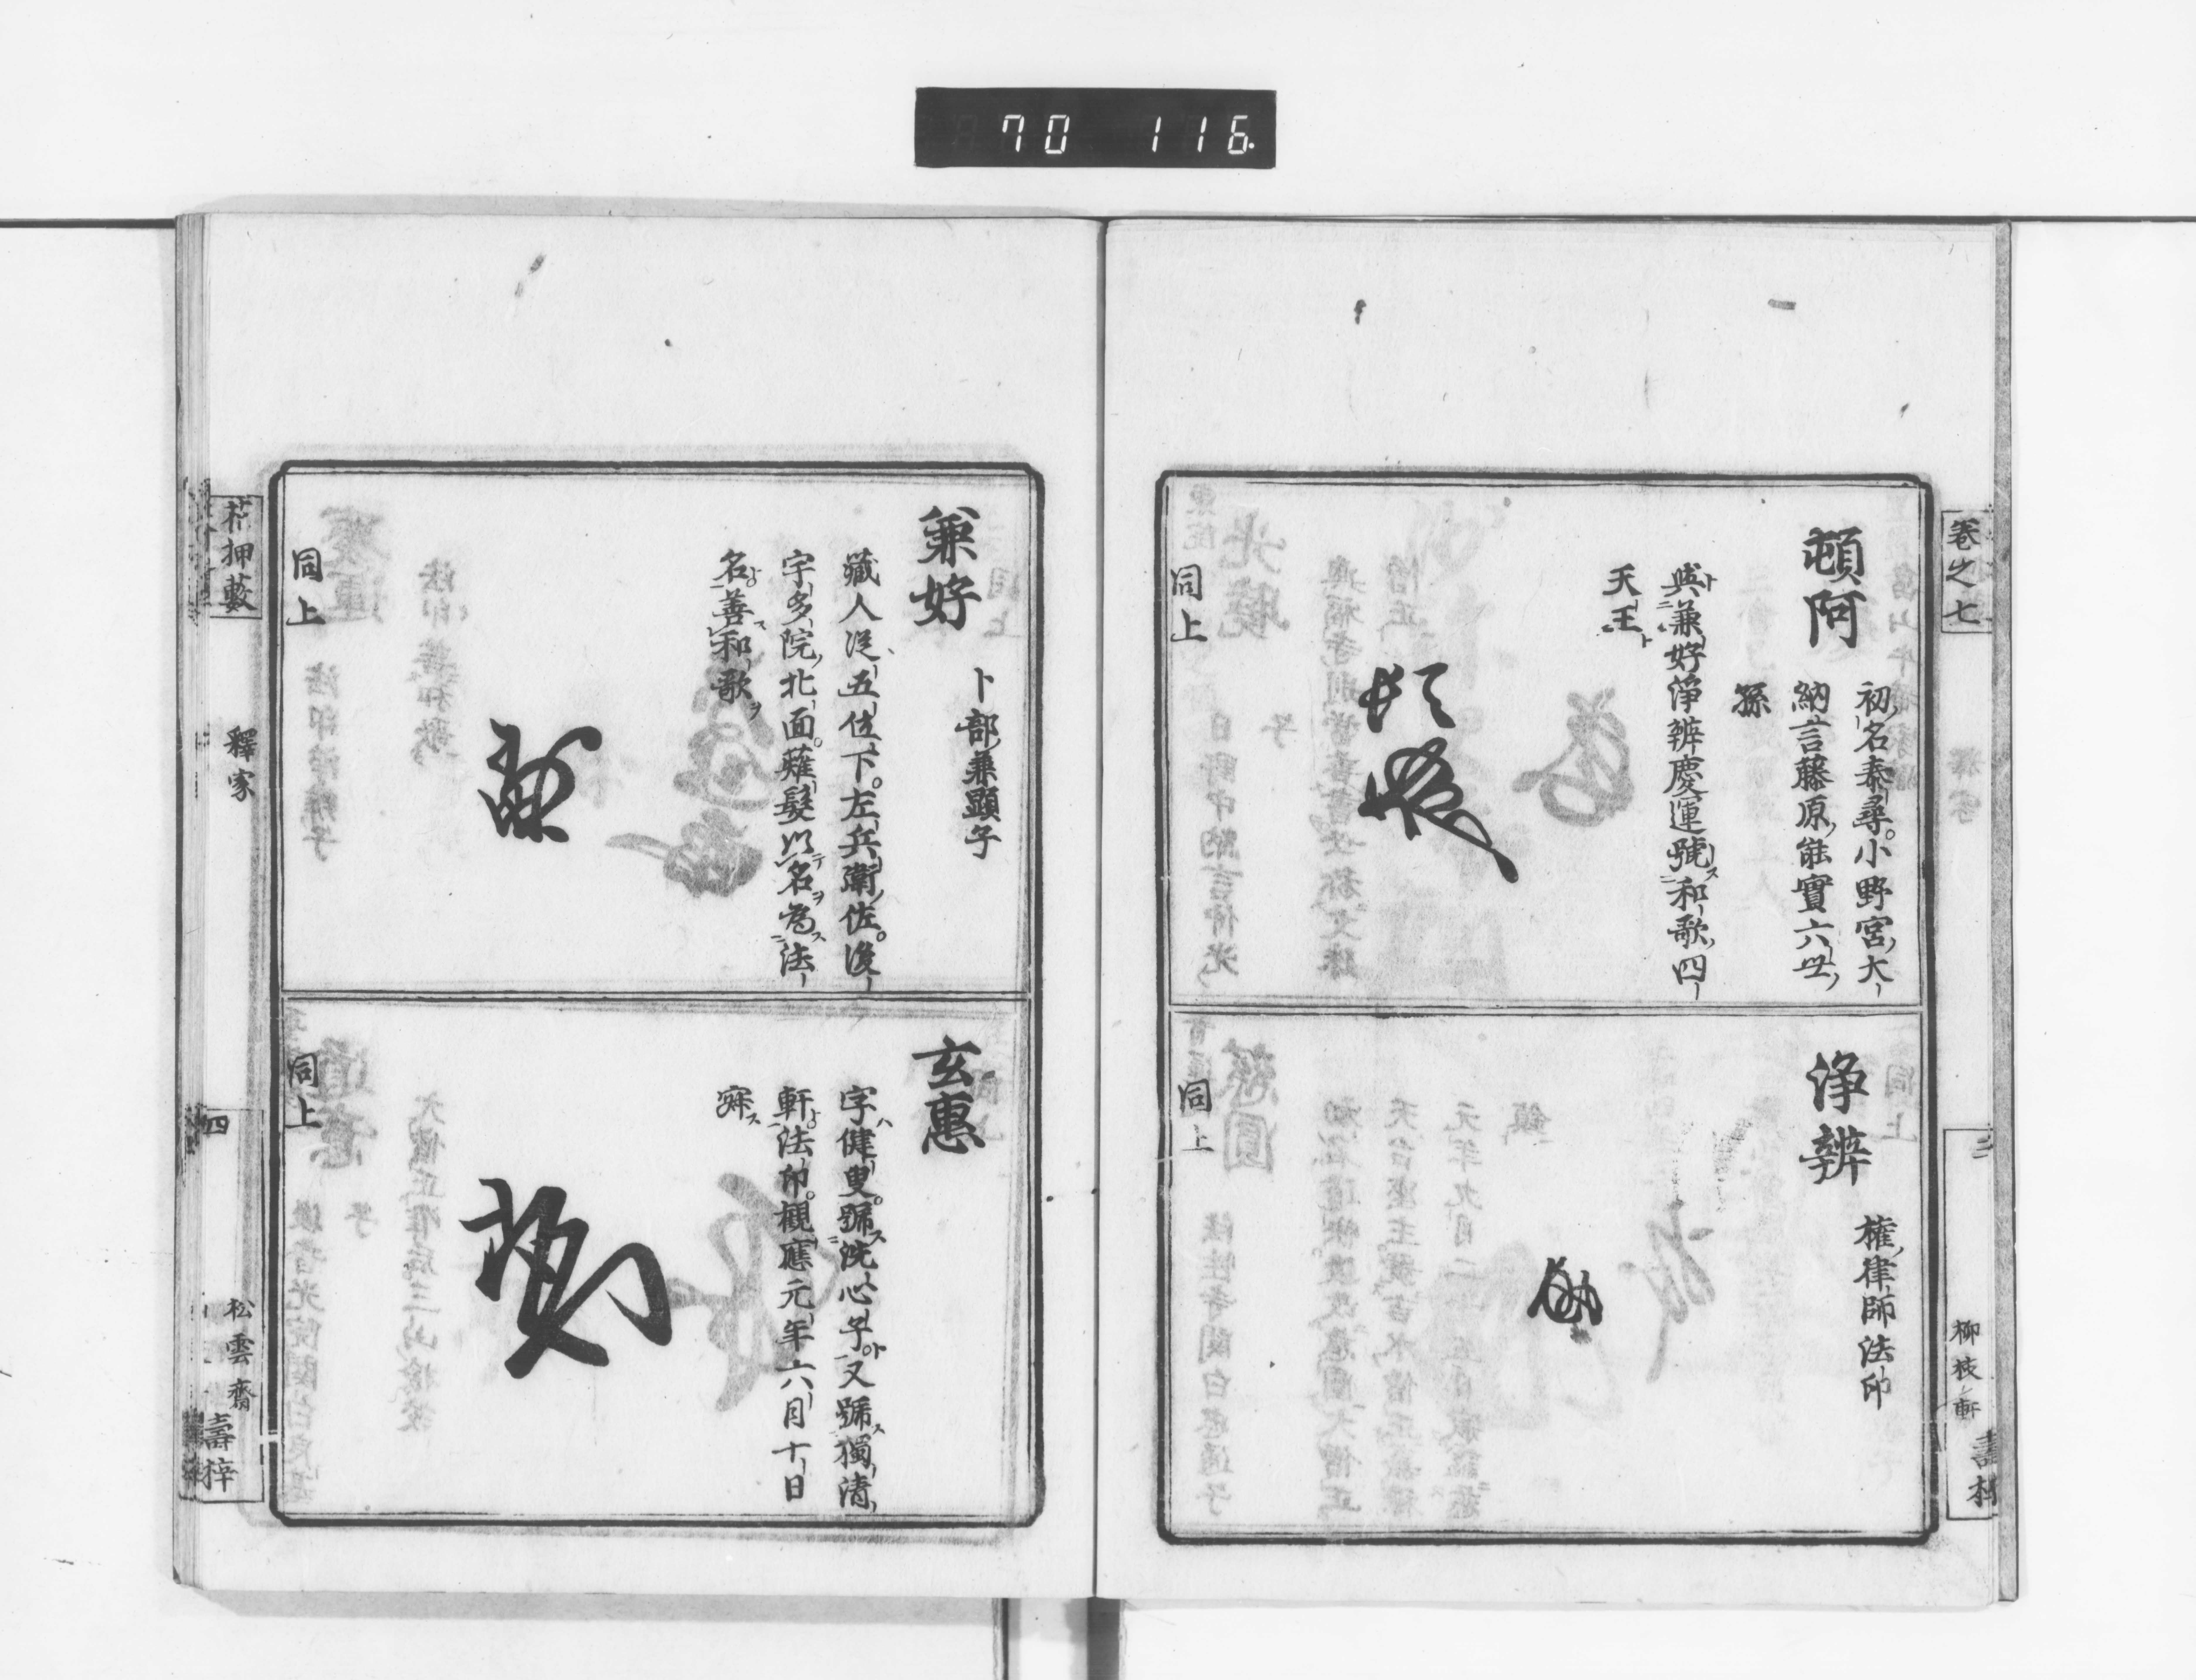 70 116
卷之七
柳枝軒
頓阿
初名泰尋。小野宮大
納言藤原能實六世
孫
與兼好淨辨慶運號和歌四
天王
同上
淨辨
權律師法印
同上
兼好
卜部兼顯子
藏人從五位下。左兵衛佐。後
宇多院北面。薙髮以名為法
名善和歌
同上
玄惠
字健叟。號洗心子又號獨清
軒法印。觀應元年六月十日
寂
同上
花押藪
釋家
四
松雲齋
壽梓